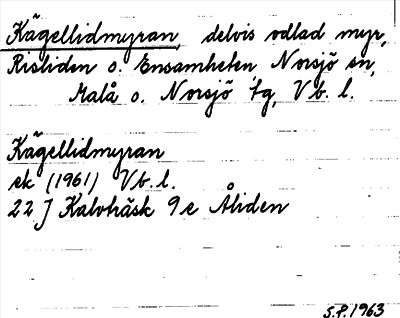 Kägellidmyran, delvis odlad myr,
Risliden o. Ensamheten Norsjö sn,
Malå o. Norsjö tg, Vb. l.
Kägellidmyran
ek (1961) Vb. l.
22 J Kalvträsk 9 e Åliden
S.P. 1963